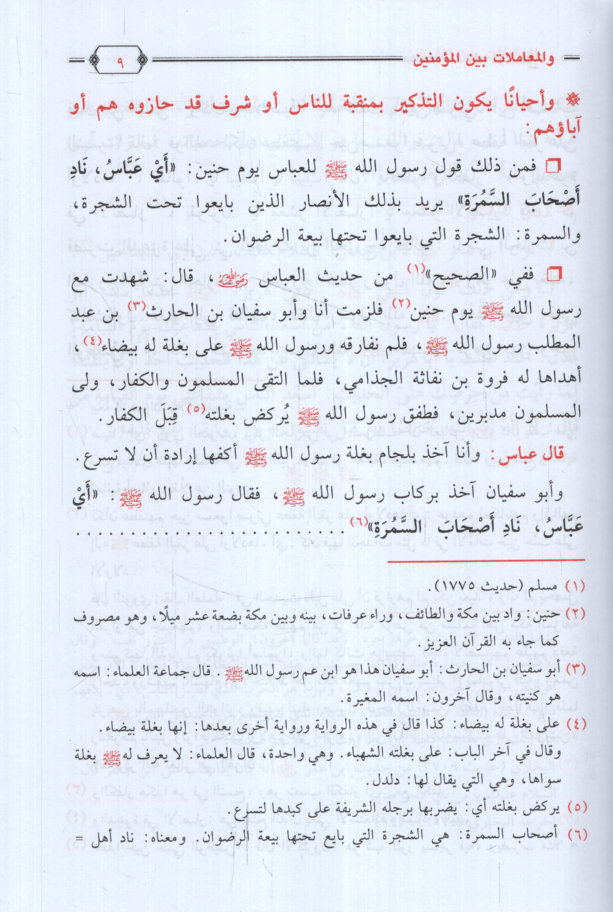 والمعاملات بين المؤمنين
٩
وأحيانًا يكون التذكير بمنقبة للناس أو شرف قد حازوه هم أو
آباؤهم:
فمن ذلك قول رسول الله ﷺ للعباس يوم حنين: «أَيْ عَبَّاسُ، نَادِ
أَصْحَابَ السَّمُرَةِ» يريد بذلك الأنصار الذين بايعوا تحت الشجرة،
والسمرة: الشجرة التي بايعوا تحتها بيعة الرضوان.
ففي «الصحيح»(١) من حديث العباس رضي الله عنه، قال: شهدت مع
رسول الله ﷺ يوم حنين(٢) فلزمت أنا وأبو سفيان بن الحارث(٣) بن عبد
المطلب رسول الله ﷺ، فلم نفارقه ورسول الله ﷺ على بغلة له بيضاء(٤)،
أهداها له فروة بن نفاثة الجذامي، فلما التقى المسلمون والكفار، ولى
المسلمون مدبرين، فطفق رسول الله ﷺ يُركض بغلته(٥) قِبَلَ الكفار.
قال عباس: وأنا آخذ بلجام بغلة رسول الله ﷺ أكفها إرادة أن لا تسرع.
وأبو سفيان آخذ بركاب رسول الله ﷺ، فقال رسول الله ﷺ: «أَيْ
عَبَّاسُ، نَادِ أَصْحَابَ السَّمُرَةِ»(٦)..........................
(١) مسلم (حديث ١٧٧٥).
(٢) حنين: واد بين مكة والطائف، وراء عرفات، بينه وبين مكة بضعة عشر ميلًا، وهو مصروف
كما جاء به القرآن العزيز.
(٣) أبو سفيان بن الحارث: أبو سفيان هذا هو ابن عم رسول الله ﷺ. قال جماعة العلماء: اسمه
هو كنيته، وقال آخرون: اسمه المغيرة.
(٤) على بغلة له بيضاء: كذا قال في هذه الرواية ورواية أخرى بعدها: إنها بغلة بيضاء.
وقال في آخر الباب: على بغلته الشهباء. وهي واحدة، قال العلماء: لا يعرف له ﷺ بغلة
سواها، وهي التي يقال لها: دلدل.
(٥) يركض بغلته أي: يضربها برجله الشريفة على كبدها لتسرع.
(٦) أصحاب السمرة: هي الشجرة التي بايع تحتها بيعة الرضوان. ومعناه: ناد أهل =